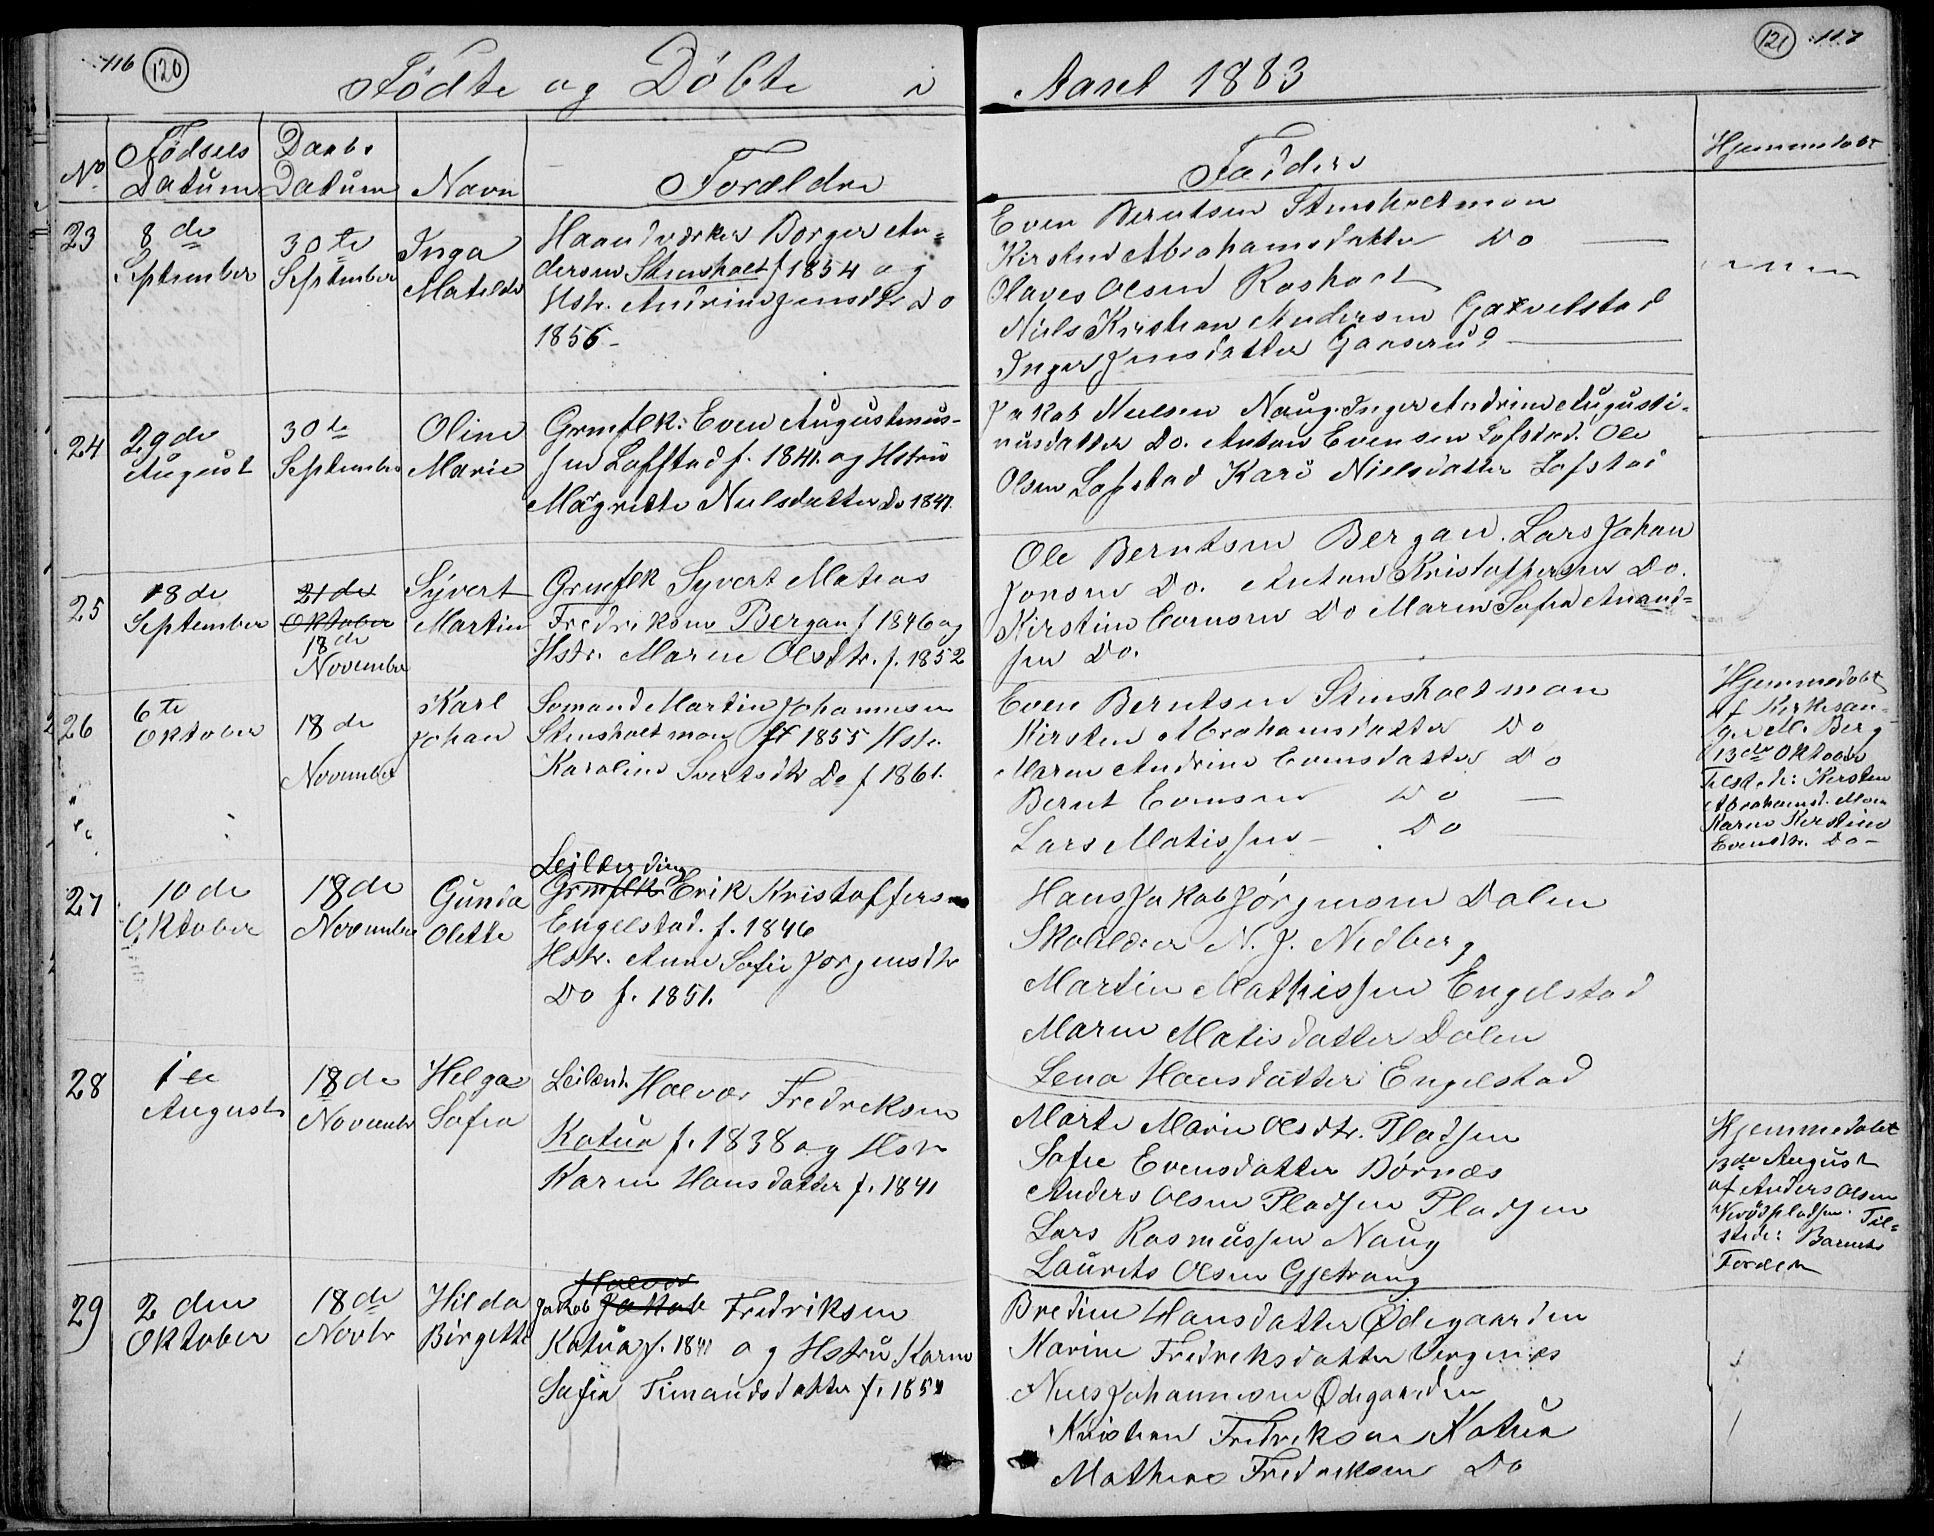 116 120
Fødte og Døbte i
Aaret 1883
121 117
No
Fødsels
Datum
Daabs
Datum
Navn
Forældre
Faddere
Hjemmedøbt
23
8de
September
30te
September
Inga
Matilde
Haandværker Borger An-
dersen Stensholt f 1854 og
Hstr. Andrine Jensdtr Do
1856 -
Even Berntsen Stensholtmoen
Kirstine Abrahamsdatter Do
Olaves Olsen Rosholt
Niels Kristian Andersen Garvelstad
Inger Jensdatter Gaaserud
24
29de
August
30te
September
Oline
Marie
Grmflk: Even Augustinus-
sen Lofstad f. 1841. og Hstru
Margrethe Nielsdatter Do 1841.
Jakob Nielsen Naug. Inger Andrine Augusti-
nusdatter Do. Anton Evensen Lofstad. Ole
Olsen Lofstad Kari Nielsdatter Lofstad
25
18de
September
21de
Oktober
18de
November
Syvert
Martin
Grmflk Syvert Matias
Fredriksen Bergan f 1846 og
Hstr. Maren Olsdtr. f. 1852
Ole Berntsen Bergan. Lars Johan
Jonsen Do. Anton Kristoffersen Do.
Kirstine Evensen Do Maren Sofie Amund-
sen Do.
26
6te
Oktober
18de
November
Karl
Johan
Sømand Martin Johannesen
Stensholtmoen f 1855 Hstr.
Karoline Svertsdtr Do f 1861.
Even Berntsen Stensholtmoen
Kirsten Abrahamsdatter Do
Maren Andrine Evensdatter Do
Bernt Evensen Do
Lars Matissen Do
Hjemmedøbt
af Kirkesan-
ger M. Berg
13de Oktober
Tilst.: Kirsten
Abrahamsd. Moen
Karen Kirstine
Evensdtr. Do -
27
10de
Oktober
18de
November
Gunda
Olette
Leilænding
Grmflk Erik Kristoffersen
Engelstad. f. 1846
Hstr. Anne Sofie Jørgensdtr
Do f. 1851.
Hans Jakob Jørgensen Dalen
Skolelærer N. J. Nedberg
Martin Mathissen Engelstad
Maren Matisdatter Dalen
Lena Hansdatter Engelstad
28
1te
August
18de
November
Helga
Sofia
Leilænd. Halvor Fredriksen
Katua f. 1838 og Hstr
Karen Hansdatter f. 1841
Marte Marie Olsdtr. Pladsen
Sofie Evensdatter Børnæs
Anders Olsen Pladsen Pladsen
Lars Rasmussen Naug
Laurits Olsen Gjetrang
Hjemmedøbt
13de August
af Anders Olsen
Til-
stede: Barnets
Forældre
29
2den
Oktober
18de
Novbr
Hilda
Birgette
Halvor
Jakob Jakob Fredriksen
Katua f. 1841 og Hstru Karen
Sofie Timandsdatter f. 1854
Bredine Hansdatter Ødegaarden
Karine Fredriksdatter Vergenæs
Niels Johannesen Ødegaarden
Kristian Fredriksen Katua
Mathias Fredriksen Do